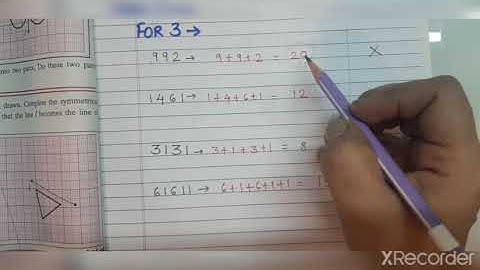 into two parts. Do these two parts
drawn. Complete the symmetrical
that the line l becomes the line of
FOR 3 →
992 → 9+9+2 = 20 ×
1461 → 1+4+6+1 = 12
3131 → 3+1+3+1 = 8
61611 → 6+1+6+1+1 =
XRecorder